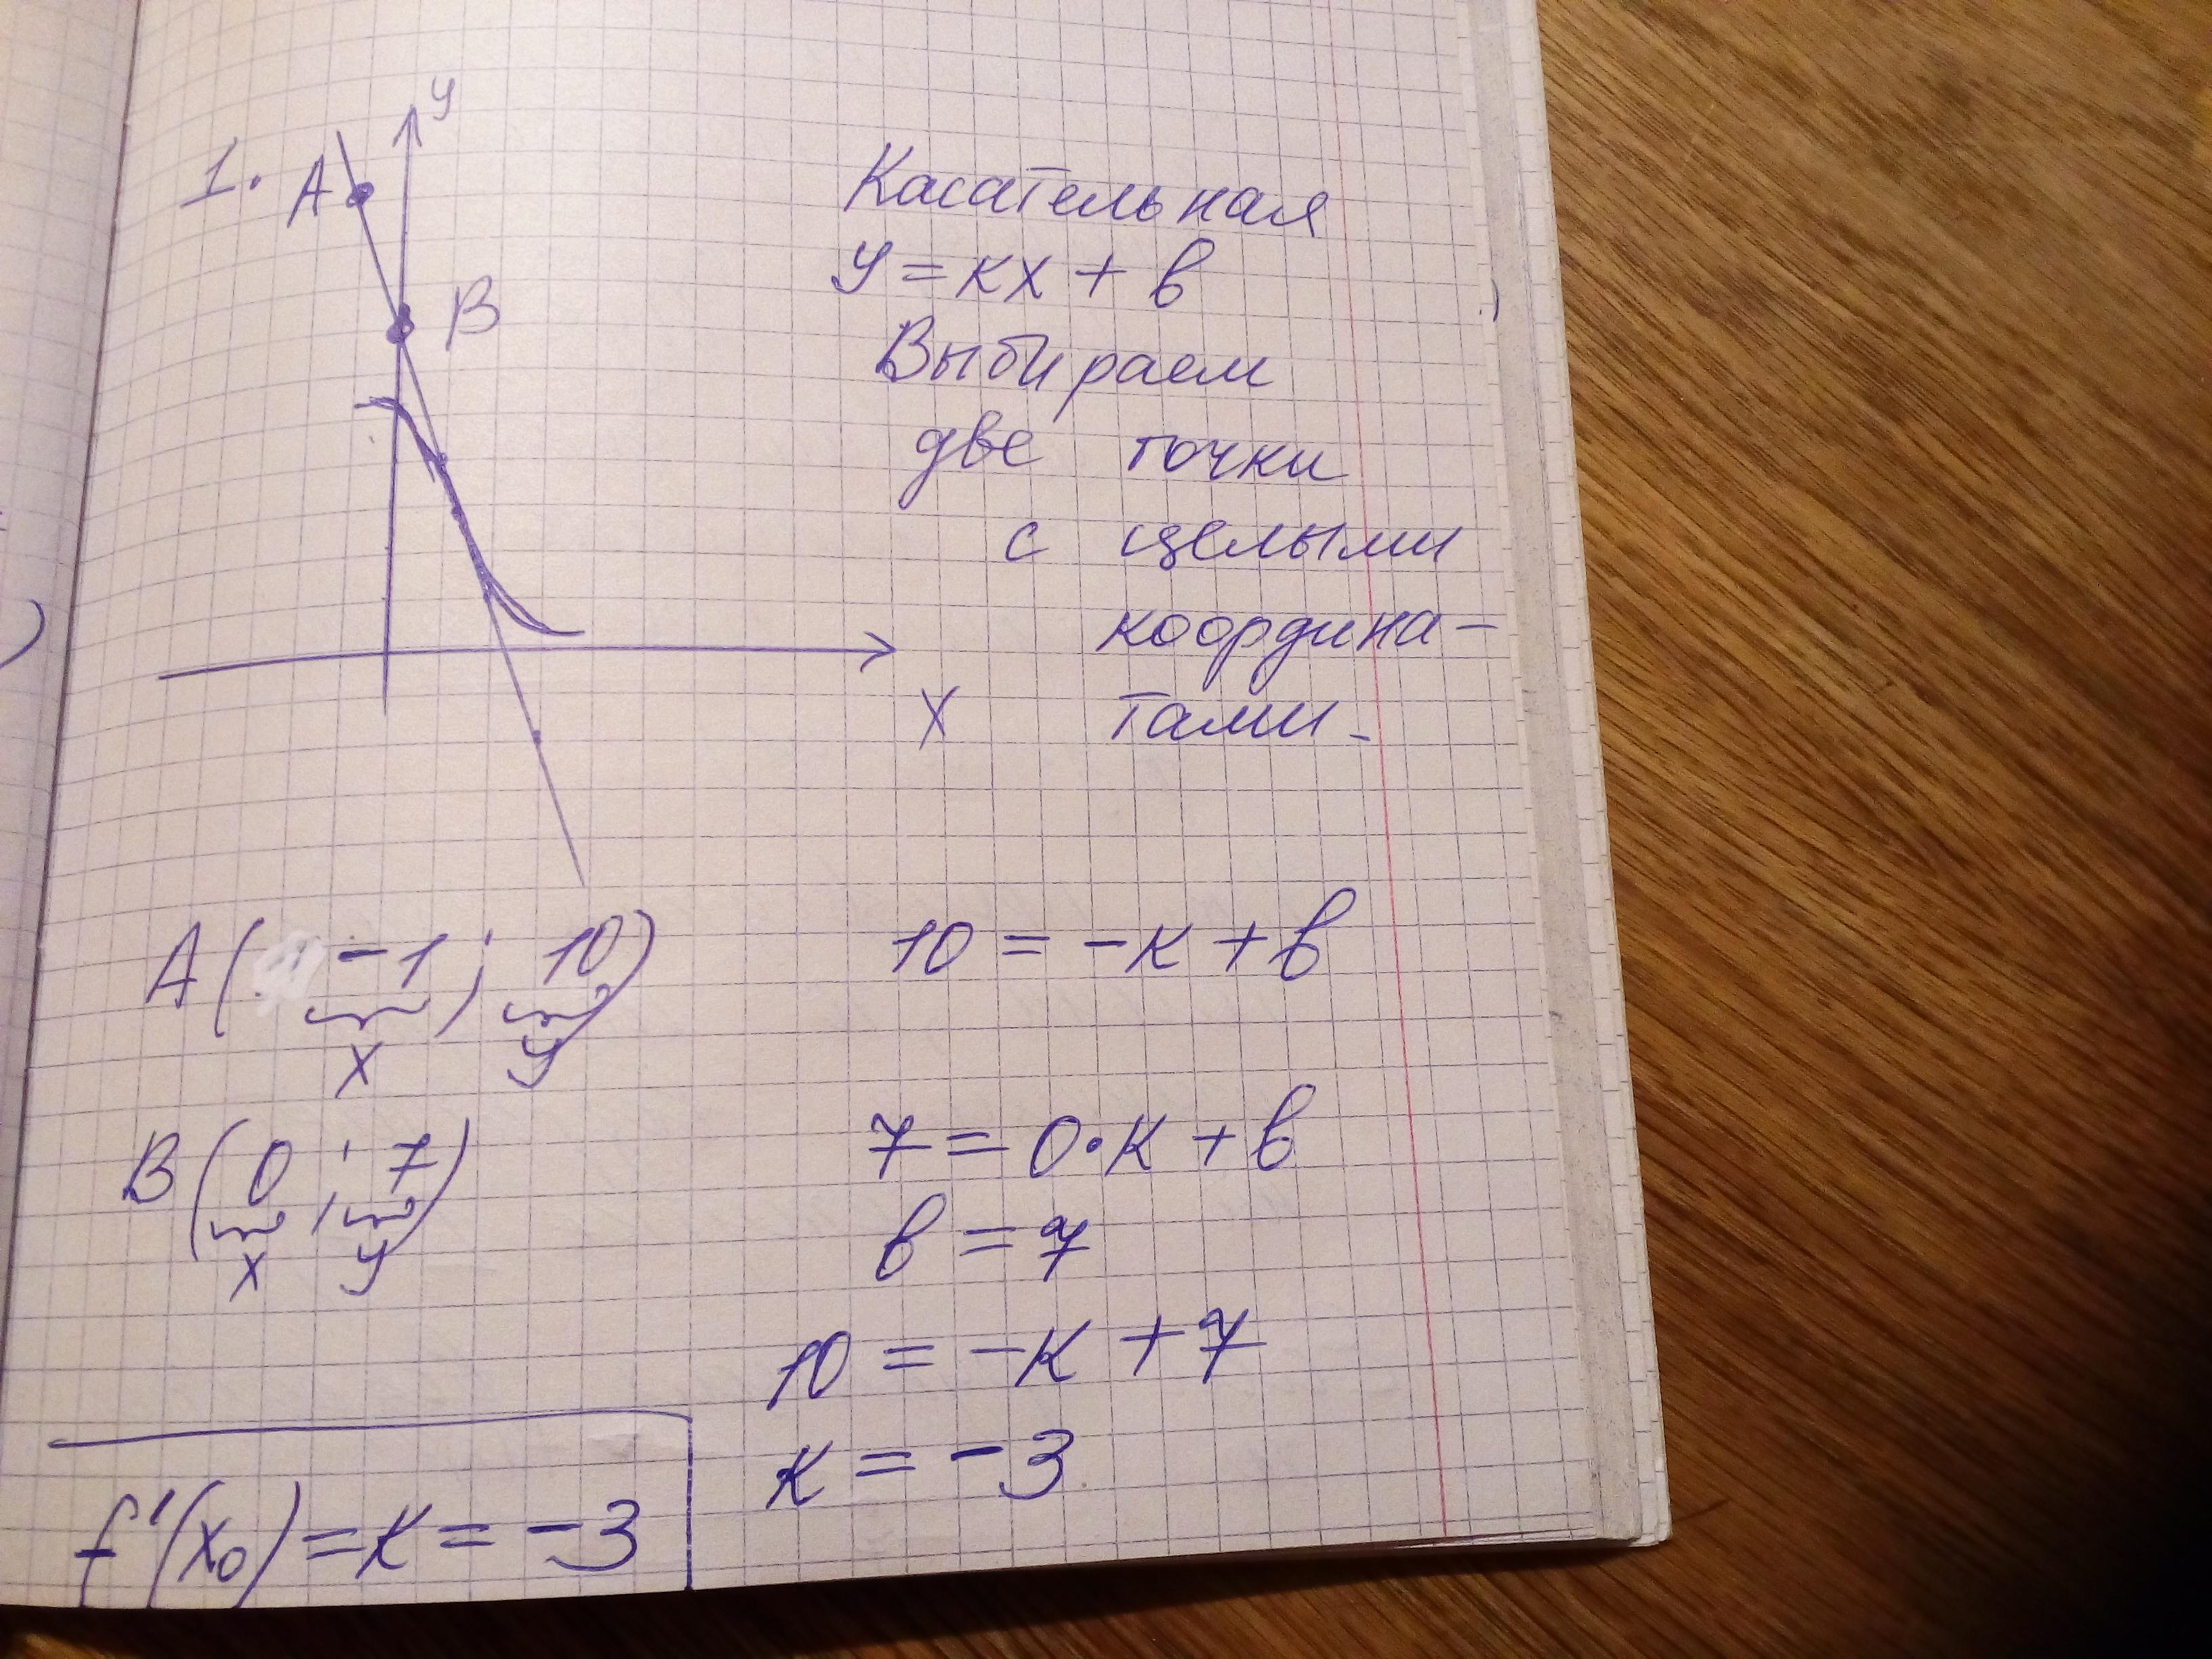 1.
y
A
B
x
Касательная
y = кx + в
Выбираем
две точки
с целыми
координа-
тами.
A( -1 ; 10)
x y
10 = -к + в
B(0 ; 7)
x y
7 = 0·к + в
в = 7
10 = -к + 7
к = -3
f'(x₀) = к = -3